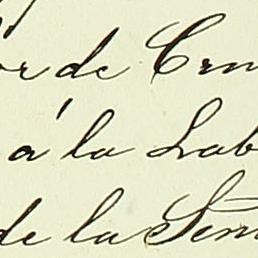 or de Cru
á la Lab
de la Sem